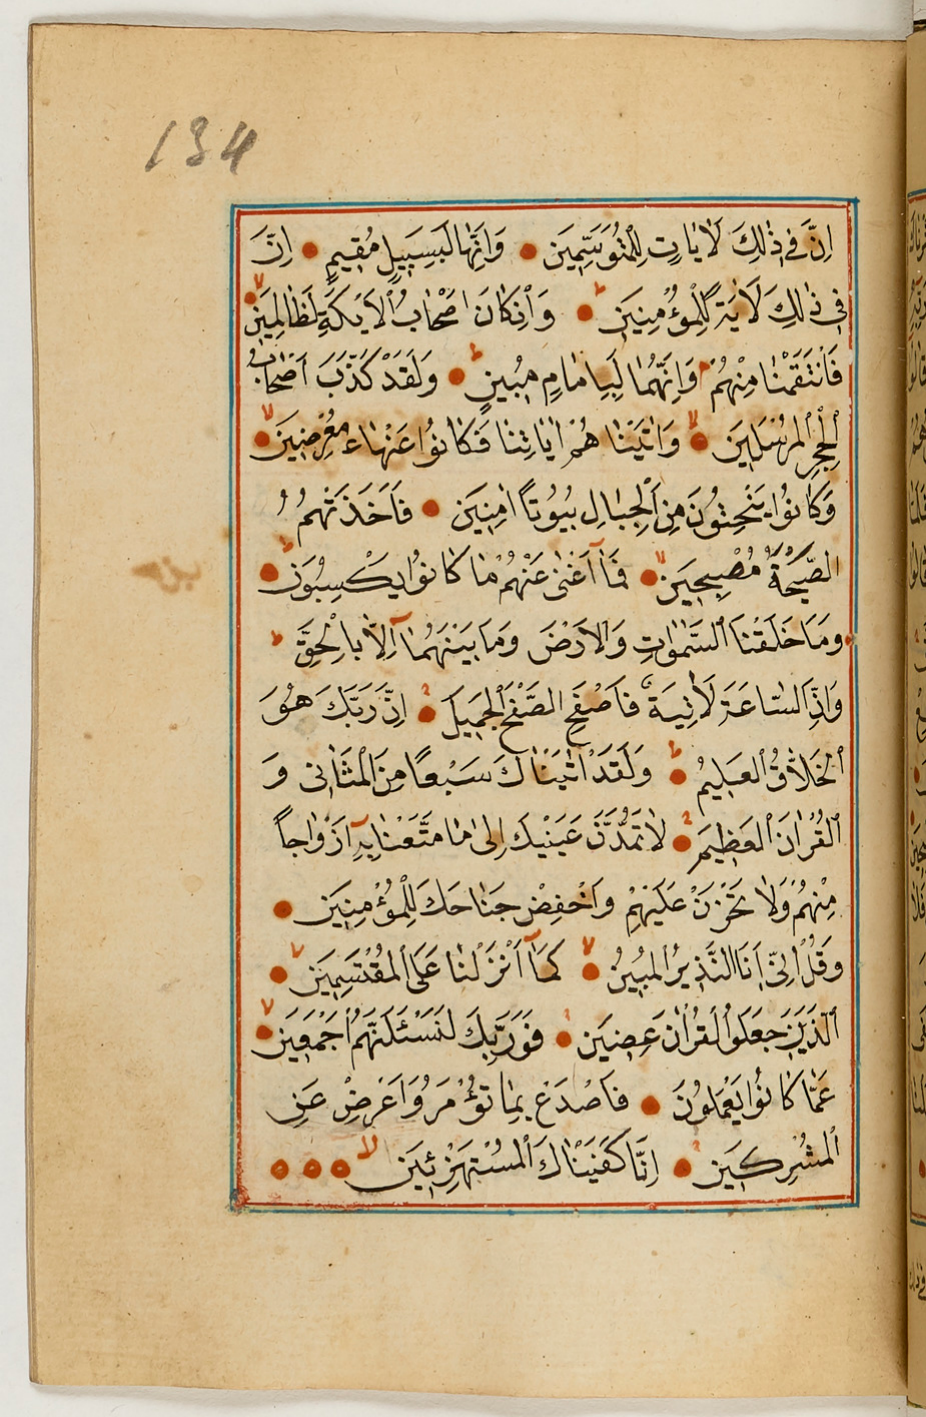 134
اِنَّ فِي ذٰلِكَ لَاٰيَاتٍ لِلْمُتَوَسِّمِينَ ● وَاِنَّهَا لَبِسَبِيلٍ مُقِيمٍ ● اِنَّ
فِي ذٰلِكَ لَاٰيَةً لِلْمُؤْمِنِينَ ● وَاِنْ كَانَ اَصْحَابُ الْاَيْكَةِ لَظَالِمِينَ ●
فَانْتَقَمْنَا مِنْهُمْ وَاِنَّهُمَا لَبِاِمَامٍ مُبِينٍ ● وَلَقَدْ كَذَّبَ اَصْحَابُ
الْحِجْرِ الْمُرْسَلِينَ ● وَاٰتَيْنَاهُمْ اٰيَاتِنَا فَكَانُوا عَنْهَا مُعْرِضِينَ ●
وَكَانُوا يَنْحِتُونَ مِنَ الْجِبَالِ بُيُوتًا اٰمِنِينَ ● فَاَخَذَتْهُمُ
الصَّيْحَةُ مُصْبِحِينَ ● فَمَا اَغْنٰى عَنْهُمْ مَا كَانُوا يَكْسِبُونَ ●
وَمَا خَلَقْنَا السَّمٰوَاتِ وَالْاَرْضَ وَمَا بَيْنَهُمَا اِلَّا بِالْحَقِّ ط
وَاِنَّ السَّاعَةَ لَاٰتِيَةٌ فَاصْفَحِ الصَّفْحَ الْجَمِيلَ ● اِنَّ رَبَّكَ هُوَ
الْخَلَّاقُ الْعَلِيمُ ● وَلَقَدْ اٰتَيْنَاكَ سَبْعًا مِنَ الْمَثَانِي وَ
الْقُرْاٰنَ الْعَظِيمَ ● لَا تَمُدَّنَّ عَيْنَيْكَ اِلٰى مَا مَتَّعْنَا بِهٖ اَزْوَاجًا
مِنْهُمْ وَلَا تَحْزَنْ عَلَيْهِمْ وَاخْفِضْ جَنَاحَكَ لِلْمُؤْمِنِينَ ●
وَقُلْ اِنِّي اَنَا النَّذِيرُ الْمُبِينُ ● كَمَا اَنْزَلْنَا عَلَى الْمُقْتَسِمِينَ ●
الَّذِينَ جَعَلُوا الْقُرْاٰنَ عِضِينَ ● فَوَرَبِّكَ لَنَسْئَلَنَّهُمْ اَجْمَعِينَ ●
عَمَّا كَانُوا يَعْمَلُونَ ● فَاصْدَعْ بِمَا تُؤْمَرُ وَاَعْرِضْ عَنِ
الْمُشْرِكِينَ ● اِنَّا كَفَيْنَاكَ الْمُسْتَهْزِئِينَ لا ● ● ●